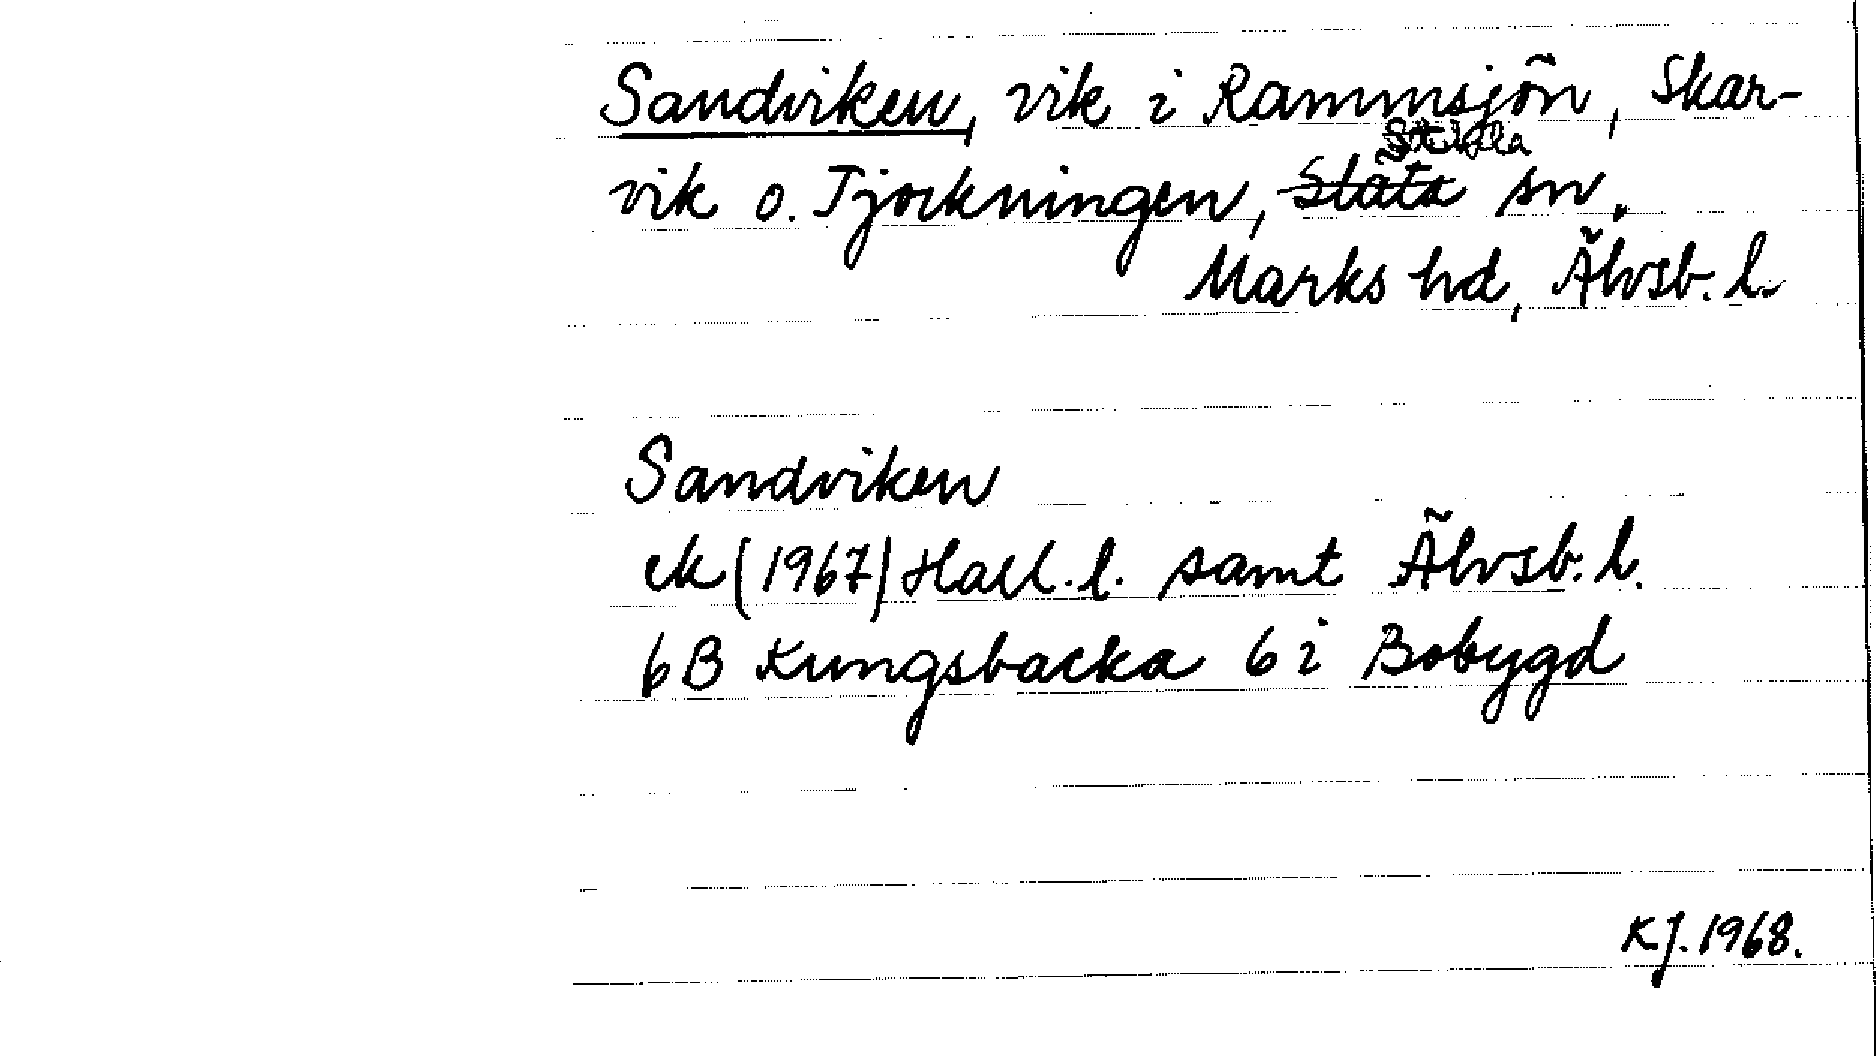 Sandviken, vik i Rammsjön, Skar-
vik o. Tjockningen, Släta Sätila sn.
Marks hd, Älvsb. l.
Sandviken
ek (1967) Hall. l. samt Älvsb. l.
6B Kungsbacka 6 i Bobygd
KJ. 1968.